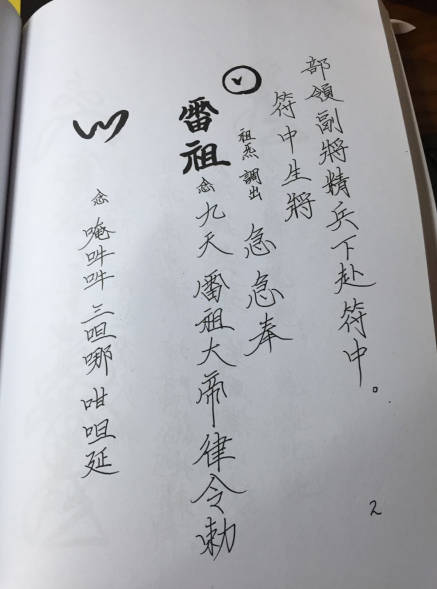 部領副將精兵下赴符中。
符中生將
祖炁調出 急急奉
雷祖 念 九天雷祖大帝律令勅
念 唵吽吽 三呾哪 咁呾延
2